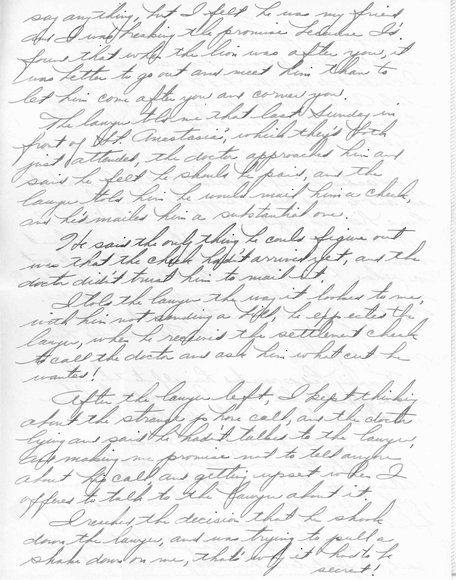 say anything, but I felt he was my friend
and I was breaking the promise because I'd
found that when the lion was after you, it
was better to go out and meet him than to
let him come after you and corner you.
The lawyer told me that last Sunday in
front of St. Anastasia, which they'd both
just attended, the doctor approached him and
said he felt he should be paid, and the
lawyer told him he would mail him a check,
and he'd mailed him a substantial one.
He said the only thing he could figure out
was that the check hadn't arrived yet, and the
doctor didn't trust him to mail it.
I told the lawyer the way it looked to me,
with him not sending a bill, he expected the
lawyer, when he received the settlement check
to call the doctor and ask him what cut he
wanted!
After the lawyer left, I kept thinking
about the strange phone call, and the doctor
lying and said he hadn't talked to the lawyer,
and making me promise not to tell anyone
about his call and getting upset when I
offered to talk to the lawyer about it.
I reached the decision that he shook
down the lawyer, and was trying to pull a
shake down on me, that's why it had to be
secret!